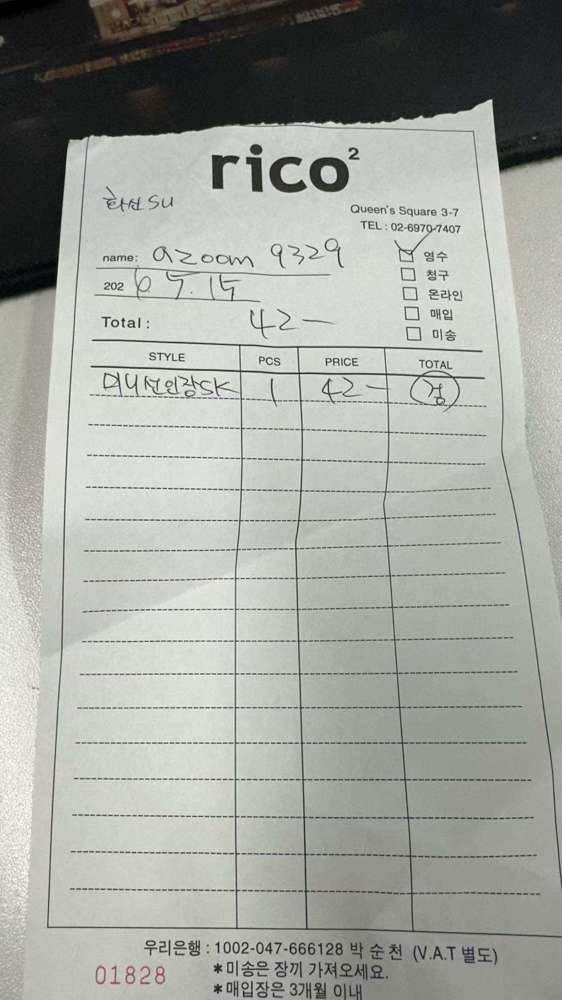 rico²
Queen's Square 3-7
TEL : 02-6970-7407
화선 SU
name: azoom 9329
202 6 5. 15
Total : 42 —
영수
청구
온라인
매입
미송
STYLE PCS PRICE TOTAL
미니선인장SK 1 42 — 검
우리은행 : 1002-047-666128 박 순 천 (V.A.T 별도)
01828
*미송은 장끼 가져오세요.
*매입장은 3개월 이내